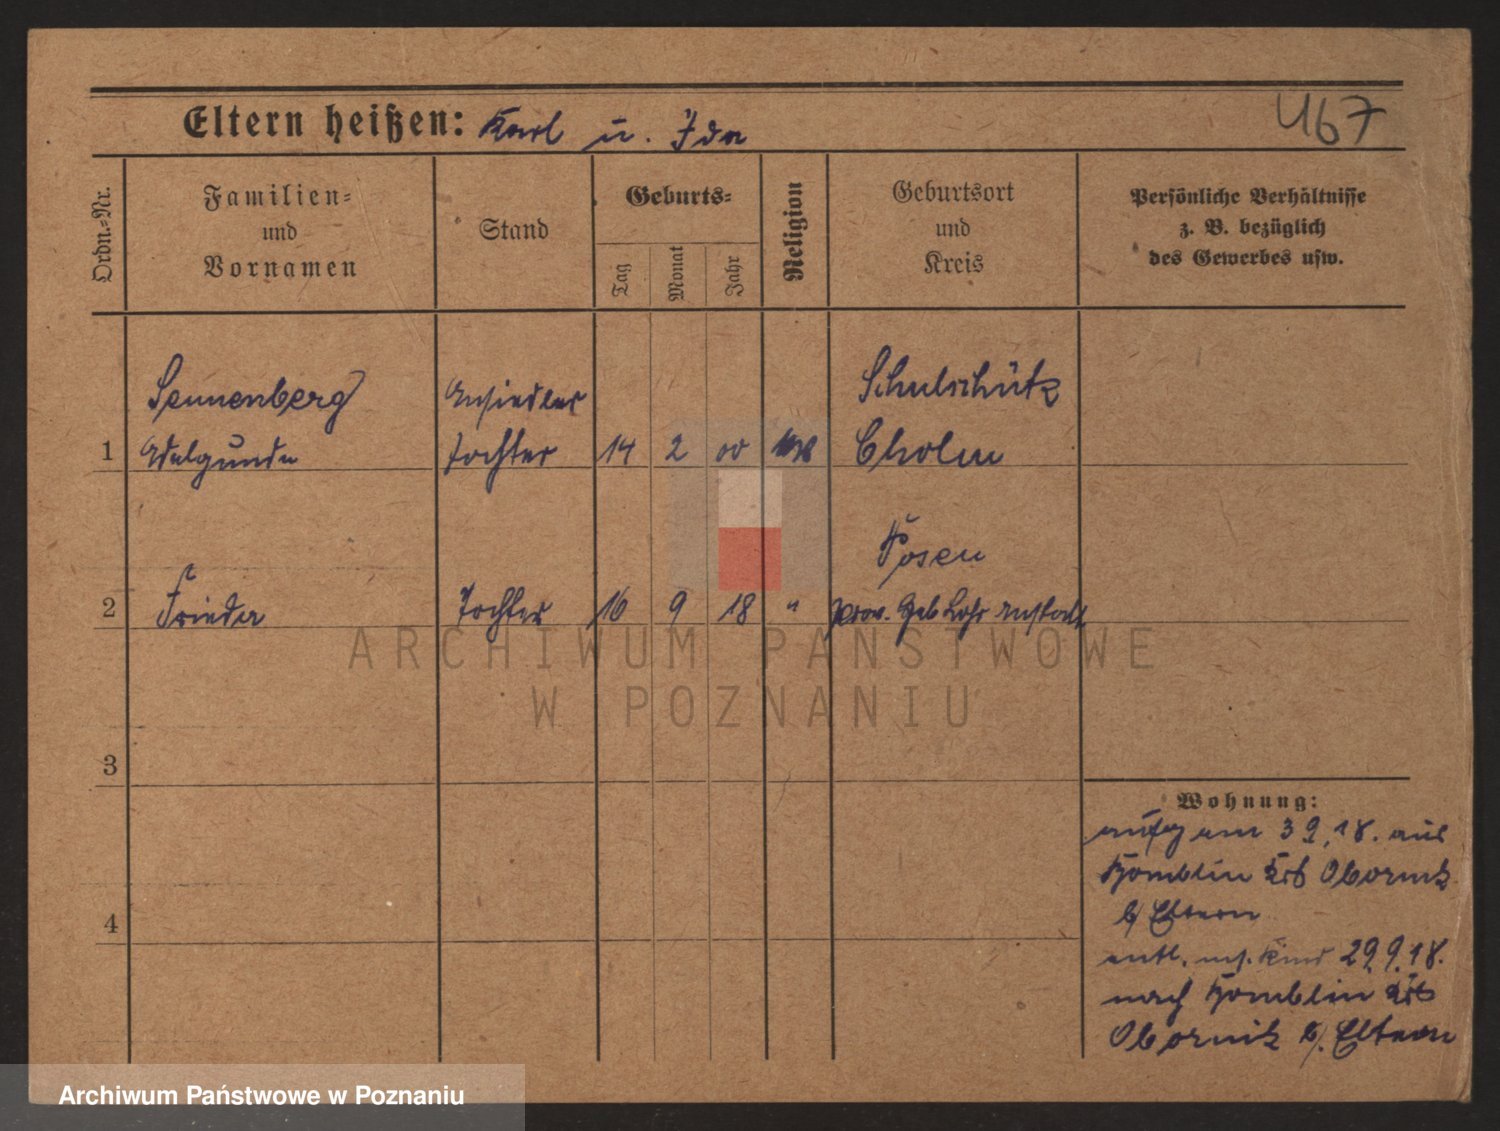 Eltern heißen: Karl u. Ida
467
Ordn.-Nr.
Familien-
und
Vornamen
Stand
Geburts-
Tag
Monat
Jahr
Religion
Geburtsort
und
Kreis
Persönliche Verhältnisse
z. B. bezüglich
des Gewerbes usw.
Sennenberg Ansiedler Schulschütz
1 Adelgunde Tochter 14 2 00 Cholm
Posen
2 Frieda Tochter 16 9 18 " prov. Geb Lehr anstalt
ARCHIWUM PAŃSTWOWE
W POZNANIU
3
4
Wohnung:
aufg am 3 9. 18. aus
Komblin Krs Obornik
b/ Eltern
entl. m. Kind 29.9.18.
nach Komblin Krs
Obornik b/. Eltern
Archiwum Państwowe w Poznaniu